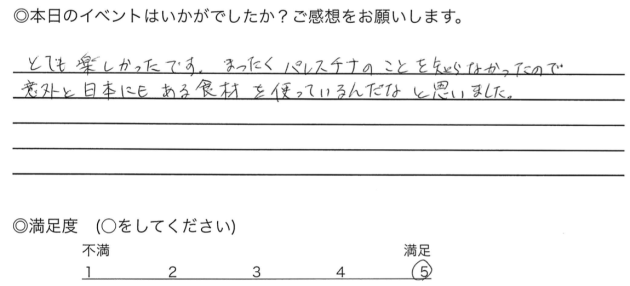 ◎本日のイベントはいかがでしたか？ご感想をお願いします。
とても楽しかったです。まったくパレスチナのことを知らなかったので
意外と日本にもある食材を使っているんだなと思いました。
◎満足度　(○をしてください)
不満　満足
1　2　3　4　5